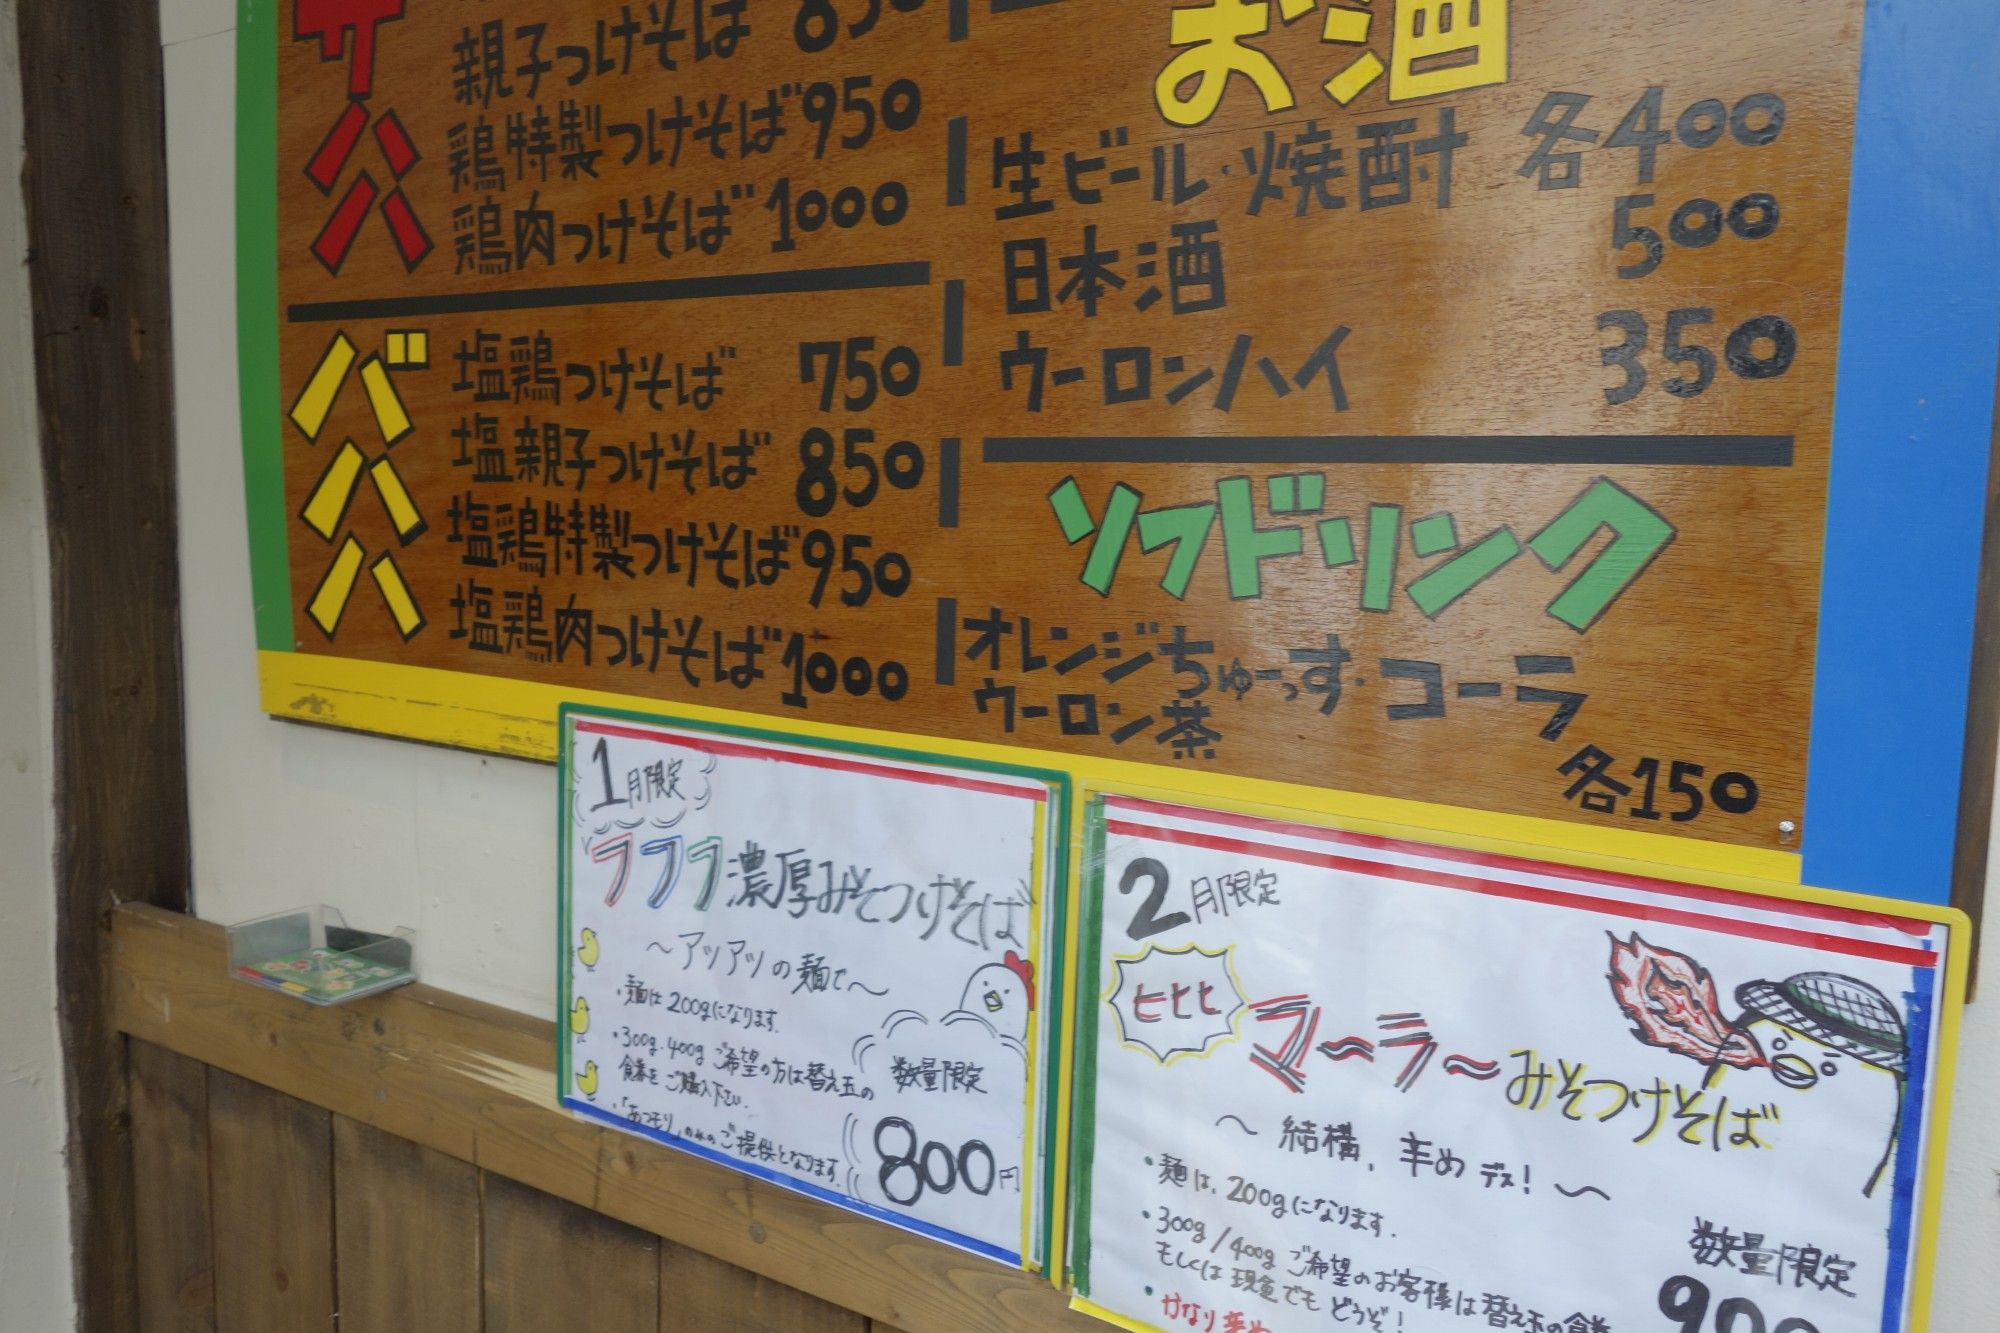 サハハ
親子つけそば 850
鶏特製つけそば 950
鶏肉つけそば 1000
ババババ
塩鶏つけそば 750
塩親子つけそば 850
塩鶏特製つけそば 950
塩鶏肉つけそば 1000
お酒
生ビール・焼酎 各400
日本酒 500
ウーロンハイ 350
ソフドリンク
オレンジちゅーっす・コーラ
ウーロン茶
各150
1月限定
フフフ濃厚みそつけそば
～アツアツの麺で～
・麺は200gになります。
・300g・400gご希望の方は替え玉の
食券をご購入下さい。
・「あつモリ」のみのご提供となります。
数量限定
800円
2月限定
ヒヒヒ
マ～ラ～みそつけそば
～結構、辛めデス！～
・麺は、200gになります。
・300g/400gご希望のお客様は替え玉の食券
もしくは現金でもどうぞ！
・かなり辛
数量限定
900